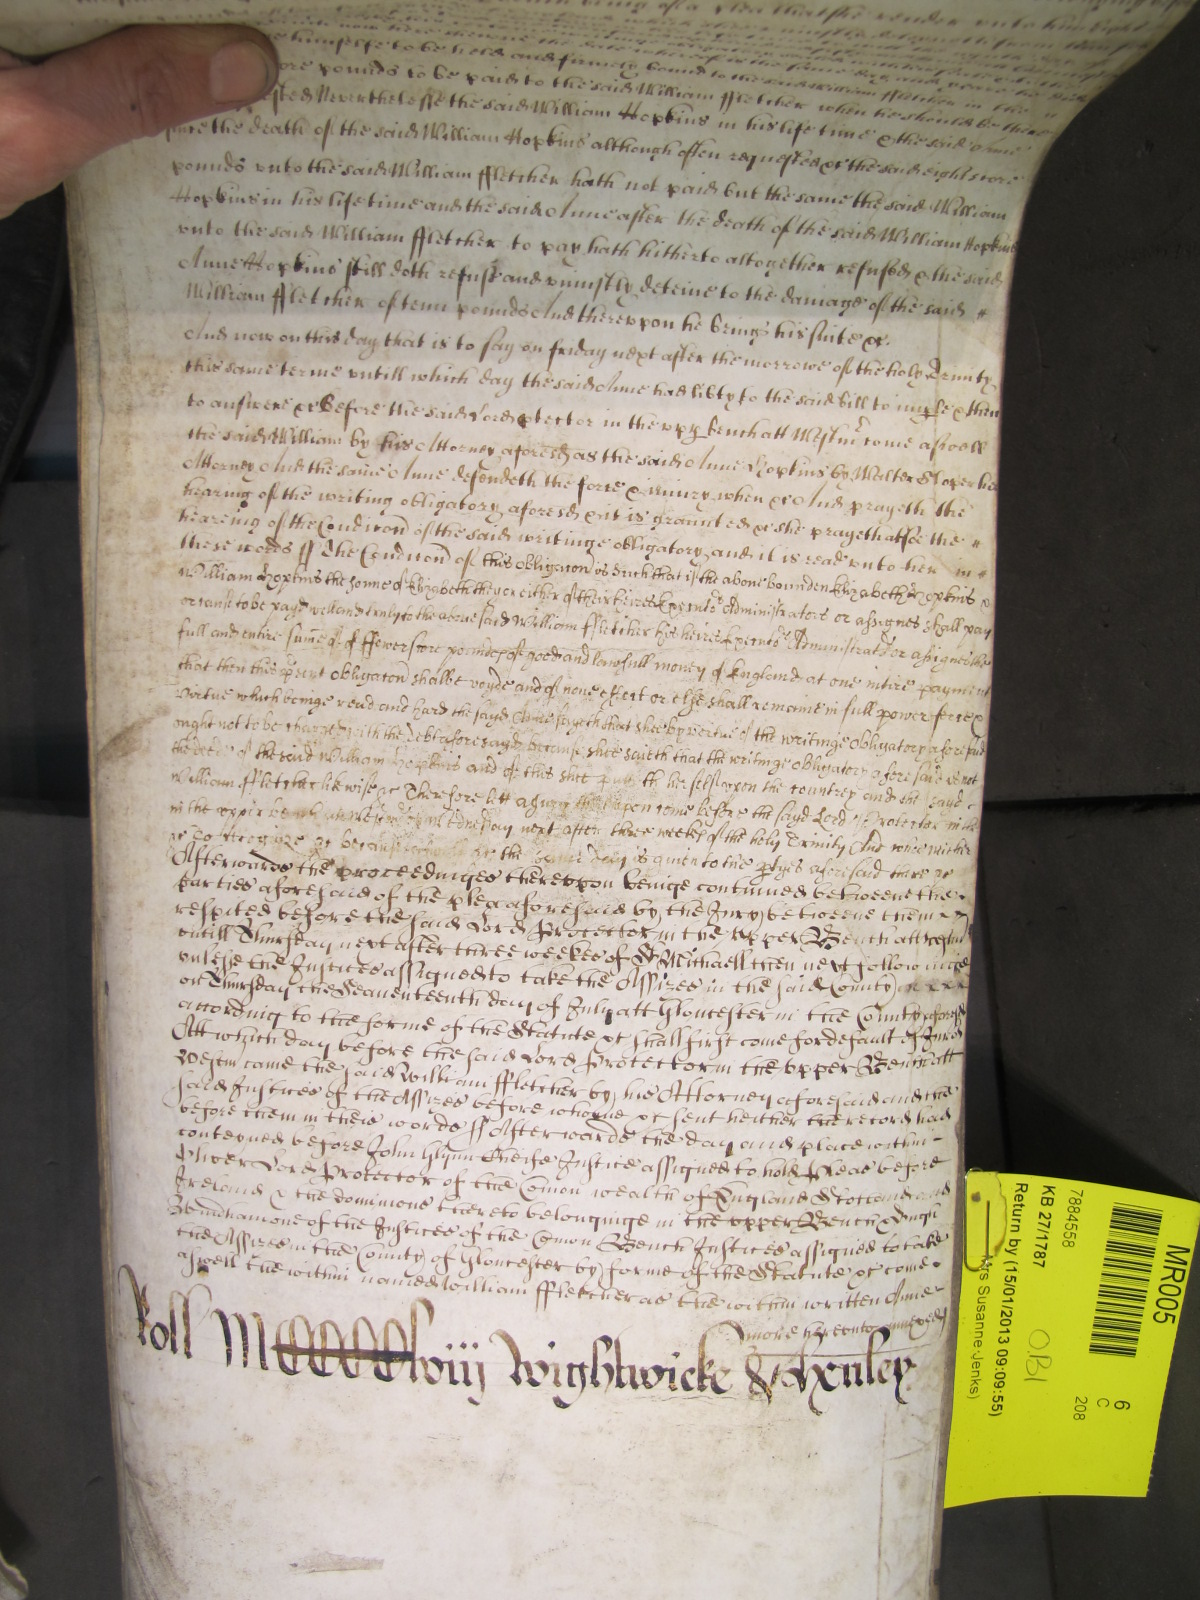 himselfe to be held and firmely bound to the said William Fletcher in the
pounds to be paid to the said William ffletcher when he should be there
Neverthelesse the said William Hopkins in his life time & the said Anne
the death of the said William Hopkins although often requested &c the said eight score
pounds unto the said William ffletcher hath not paid but the same the said William
Hopkins in his life time and the said Anne after the death of the said William Hopkins
unto the said William ffletcher to pay hath hitherto altogether refused & the said
Anne Hopkins still doth refuse and uniustly deteine to the damage of the said
William ffletcher of tenn pounds And thereuppon he brings his suite &c.
And now on this day that is to say on friday next after the morrowe of the holy Trinity
this same terme untill which day the said Anne had libty to the said bill to imple & then
to answere &c Before the said Lord ptector in the uppr bench att Westmr come aswell
the said William by his Attorney aforesd as the said Anne Hopkins by Walter Sloper her
Attorney And the same Anne defendeth the force & iniury when &c And prayeth the
hearing of the writing obligatory aforesd & it is graunted &c she prayeth alsoe the
heareing of the Condicon of the said writinge obligatory and it is read unto her in
these words ff The Condicon of this Obligacon is such that if the above bounden Elizabeth Hopkins &
William Hopkins the sonne of Elizabeth they or either of their heires Executors Administrators or assignes shall pay
or cause to be payd well and truly to the above said William ffletcher his heires Executors Administrators or assignes the
full and entire sume of ffowerscore poundes of good and lawfull money of England at one intire payment
that then this present obligacon shalbe voyde and of none effect or else shall remaine in full power force &
virtue which beinge read and hard the sayd Anne sayeth that shee by vertue of the writinge Obligatory aforesaid
ought not to be charged with the debt aforesayd because shee saieth that the writinge obligatory aforesaid is not
the deede of the said William Hopkins and of this shee putteth her selfe uppon the countrey and the sayd
William ffletcher likewise &c Therefore lett a Jury thereupon come before the sayd Lord Protector in the
in the upper bench at Westmr on wednesday next after three weekes of the holy Trinity And who neither
&c To recognize &c because aswell &c the same day is given to the ptyes aforesaid there &c
Afterwards the proceedinges thereuppon beinge continued betweene the
parties aforesaid of the plea aforesaid by the Jury betweene them
respited before the said Lord Protector in the upper Bench att Westmr
untill Thursday next after three weekes of St Michaell then next followinge
unlesse the Justices assigned to take the Assizes in the said County
on Thursday the Seaventeenth day of July att Gloucester in the County aforesd
according to the forme of the Statute &c shall first come for default of Jurors
Att which day before the said Lord Protector in the upper Bench att
Westm come the said William ffletcher by his Attorney aforesaid and the
said Justices of the Assizes before whome &c sent heither the record had
before them in theis words ff Afterwards the day and place within
conteyned before John Glynn Cheife Justice assigned to hold Pleas before
Oliver Lord Protector of the Comon wealth of England Scotland and
Ireland & the dominions thereto belonginge in the upper Bench Hugh
Wyndham one of the Justices of the Comon Bench Justices assigned to take
the Assizes in the County of Gloucester by forme of the Statute &c come
aswell the within named William ffletcher as the within written Anne
more hereunto annexed
Roll MCCCCClviij Wightwicke &
MR005
6
C
208
7884558
KB 27/1787
OBI
Return by (15/01/2013 09:09:55)
Mrs Susanne Jenks)